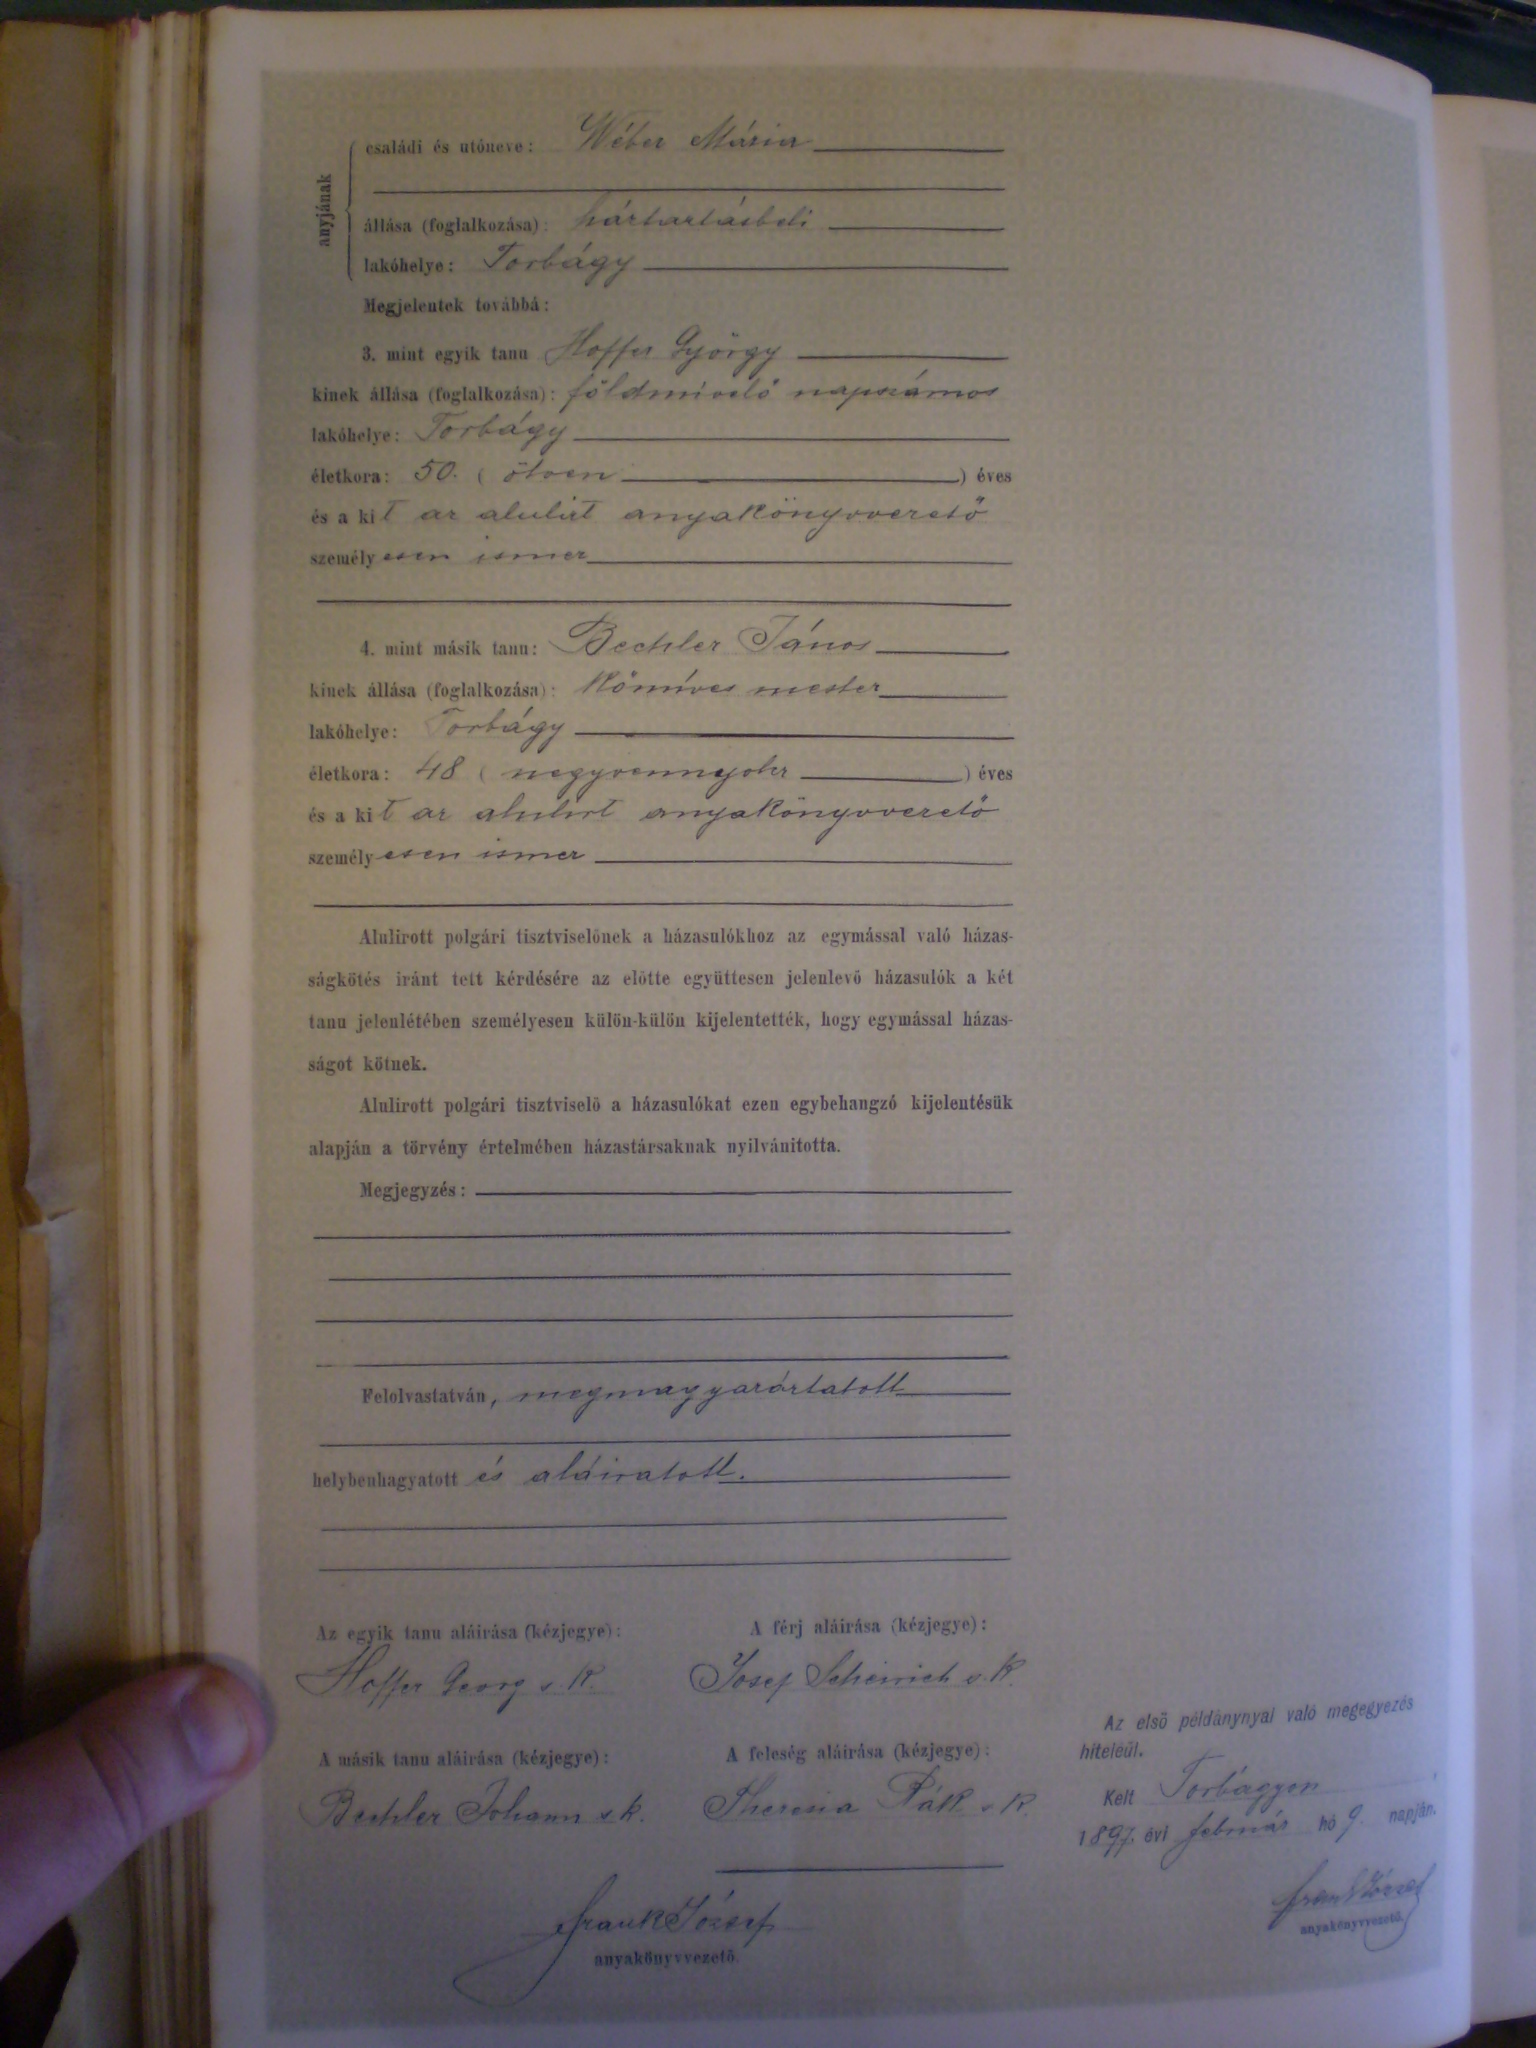 anyjának
családi és utóneve: Wéber Mária
állása (foglalkozása): háztartásbeli
lakóhelye: Torbágy
Megjelentek továbbá:
3. mint egyik tanu Hoffer György
kinek állása (foglalkozása): földmivelő napszámos
lakóhelye: Torbágy
életkora: 50. (ötven) éves
és a kit az alulirt anyakönyvvezető
személyesen ismer
4. mint másik tanu: Bechler János
kinek állása (foglalkozása): Kőmíves mester
lakóhelye: Torbágy
életkora: 48 (negyvennyolcz) éves
és a kit az alulirt anyakönyvvezető
személyesen ismer
Alulirott polgári tisztviselőnek a házasulókhoz az egymással való házas-
ságkötés iránt tett kérdésére az előtte együttesen jelenlevő házasulók a két
tanu jelenlétében személyesen külön-külön kijelentették, hogy egymással házas-
ságot kötnek.
Alulirott polgári tisztviselő a házasulókat ezen egybehangzó kijelentésük
alapján a törvény értelmében házastársaknak nyilvánitotta.
Megjegyzés:
Felolvastatván, megmagyaráztatott
helybenhagyatott és aláiratott.
Az egyik tanu aláirása (kézjegye): A férj aláirása (kézjegye):
Hoffer Georg s. k. Josef s. k.
A másik tanu aláirása (kézjegye): A feleség aláirása (kézjegye):
Bechler Johann s k. Theresia Pák s k.
Frank József
anyakönyvvezető.
Az első példánynyal való megegyezés
hiteléül.
Kelt Torbágyon
1897. évi február hó 9. napján.
Frank József
anyakönyvvezető.